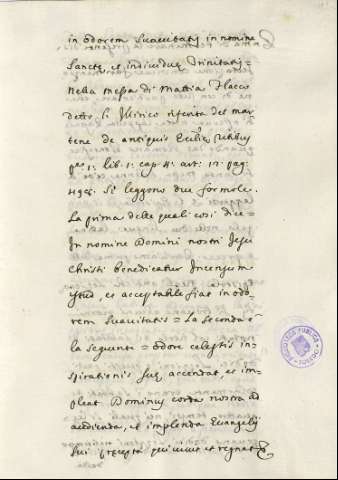 in odorem suavitatis in nomine
Sanctę, et individuę Trinitatis =
Nella Messa di Mattia Flacco
detto l'Illirico riferita del mar=
tene de antiquis Ecclię Ritibus
pag. 1. lib. 1. cap. 4. art. 12. pag.
498. Si leggono due formole.
La prima delle quali così dice =
In nomine Domini nostri Jesu
Christi benedicatur Incensum
istud, et acceptabile fiat in odo=
rem suavitatis = La seconda è
la seguente = odore cęlestis in=
spirationis suę accendat, et im=
pleat Dominus corda nostra ad
audienda, et implenda Evangelij
sui pręcepta qui vivit et regnat
BIBLIOTECA PUBLICA